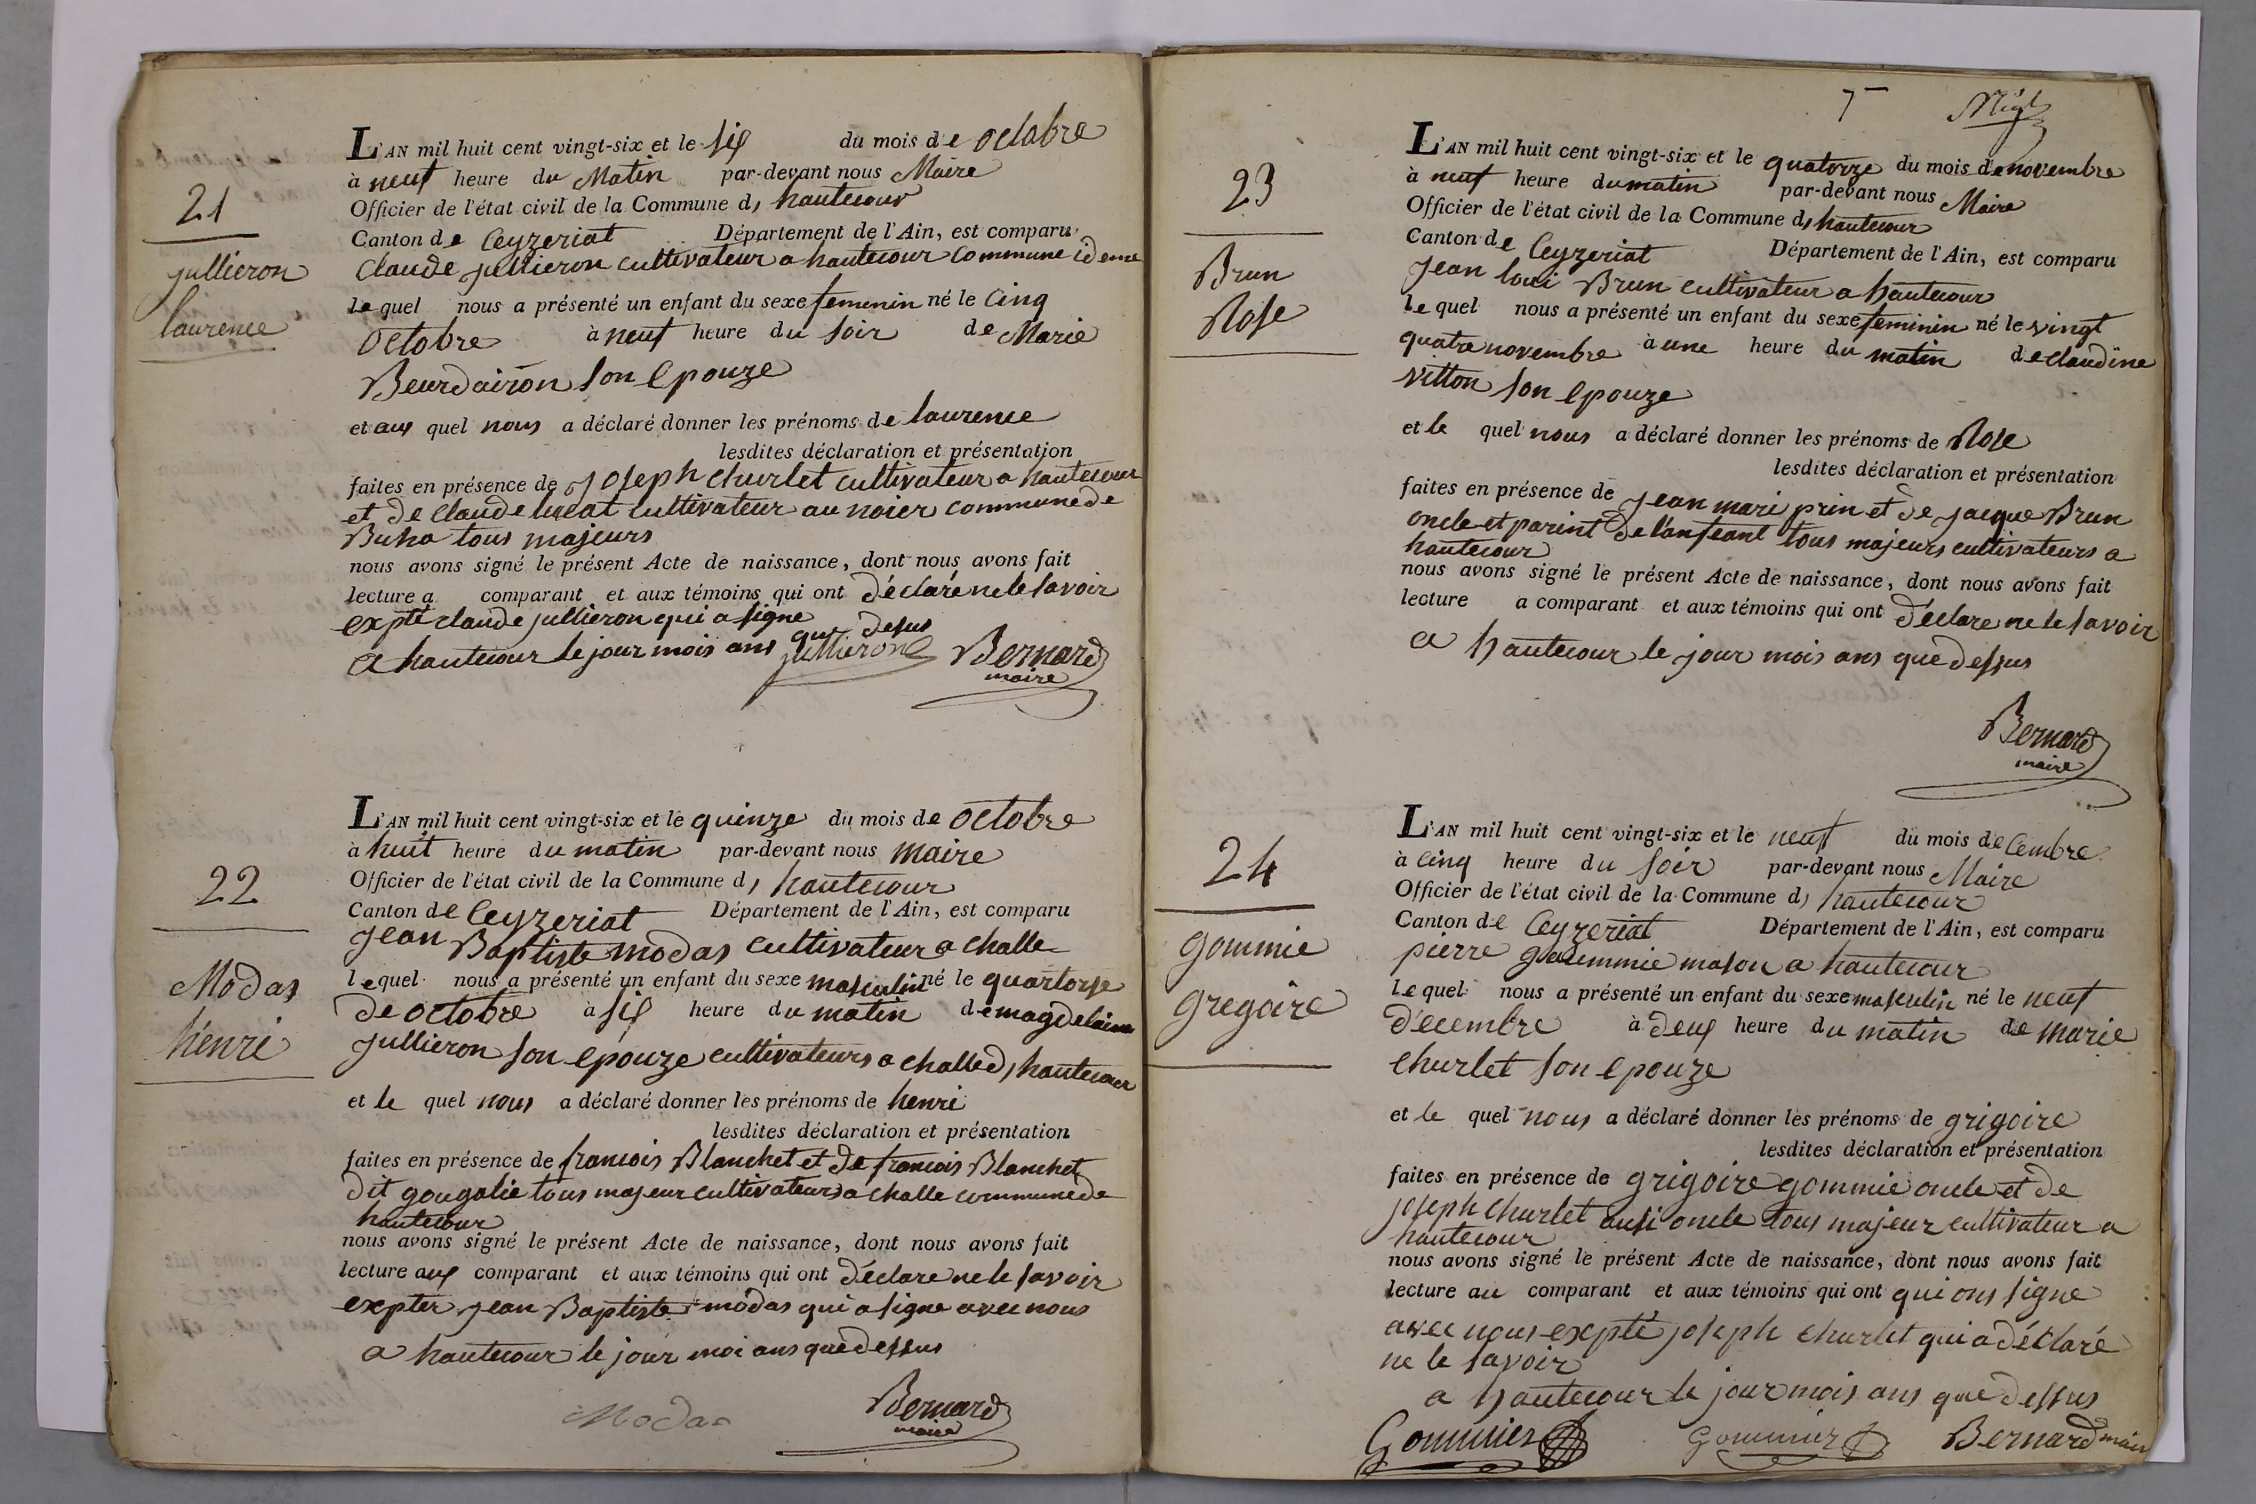 21
jullieron
laurence
L'AN mil huit cent vingt-six et le six du mois de octobre
à neuf heure du Matin par-devant nous Maire
Officier de l'état civil de la Commune d, hautecour
Canton de Ceyzeriat Département de l'Ain, est comparu
Claude jullieron cultivateur a hautecour commune ideme
lequel nous a présenté un enfant du sexe feminin né le cinq
octobre à neuf heure du soir de Marie
Beurdairon son epouze
et aux quel nous a déclaré donner les prénoms de laurence
lesdites déclaration et présentation
faites en présence de joseph churlet cultivateur a hautecour
et de claude lucat cultivateur au noier commune de
Buha tous majeurs
nous avons signé le présent Acte de naissance, dont nous avons fait
lecture a comparant et aux témoins qui ont déclaré ne le savoir
expté claude jullieron qui a signe
a hautecour le jour mois ans que desus
jullieron Bernard
maire
22
Modas
henri
L'AN mil huit cent vingt-six et le quinze du mois de octobre
à huit heure du matin par-devant nous maire
Officier de l'état civil de la Commune d, hautecour
Canton de Ceyzeriat Département de l'Ain, est comparu
jean Baptiste modas cultivateur a challe
lequel nous a présenté un enfant du sexe masculin né le quartorse
de octobre à six heure du matin de magdelaine
jullieron son epouze cultivateurs a challe d, hautecour
et le quel nous a déclaré donner les prénoms de henri
lesdites déclaration et présentation
faites en présence de francois Blanchet et de francois Blanchet
dit gougalie tous majeur cultivateurs a challe commune de
hautecour
nous avons signé le présent Acte de naissance, dont nous avons fait
lecture aux comparant et aux témoins qui ont déclare ne le savoir
expter jean Baptiste modas qui a signe avec nous
a hautecour le jour moi ans que dessus
Modas Bernard
maire
7
23
Brun
Rose
L'AN mil huit cent vingt-six et le quatorze du mois de novembre
à neuf heure du matin par-devant nous Maire
Officier de l'état civil de la Commune d, hautecour
Canton de Ceyzeriat Département de l'Ain, est comparu
jean loui Brun cultivateur a hautecour
le quel nous a présenté un enfant du sexe feminin né le vingt
quatre novembre à une heure du matin de claudine
vitton son epouze
et le quel nous a déclaré donner les prénoms de Rose
lesdites déclaration et présentation
faites en présence de jean mari prin et de jacque Brun
oncle et parint de l'anfeant tous majeurs cultivateurs a
hautecour
nous avons signé le présent Acte de naissance, dont nous avons fait
lecture a comparant et aux témoins qui ont déclare ne le savoir
a hautecour le jour mois ans que dessus
Bernard
maire
24
gommie
gregoire
L'AN mil huit cent vingt-six et le neuf du mois decembre
à cinq heure du soir par-devant nous Maire
Officier de l'état civil de la Commune d, hautecour
Canton de Ceyzeriat Département de l'Ain, est comparu
pierre mason a hautecour
lequel nous a présenté un enfant du sexe masculin né le neuf
décembre à deux heure du matin de marie
churlet son epouze
et le quel nous a déclaré donner les prénoms de grigoire
lesdites déclaration et présentation
faites en présence de grigoire gommie oncle et de
joseph churlet ausi oncle tous majeur cultivateur a
hautecour
nous avons signé le présent Acte de naissance, dont nous avons fait
lecture au comparant et aux témoins qui ont qui ons signe
avec nous expté joseph churlet qui a déclaré
ne le savoir
a hautecour le jour mois ans que dessus
Gommier Gommier Bernard maire